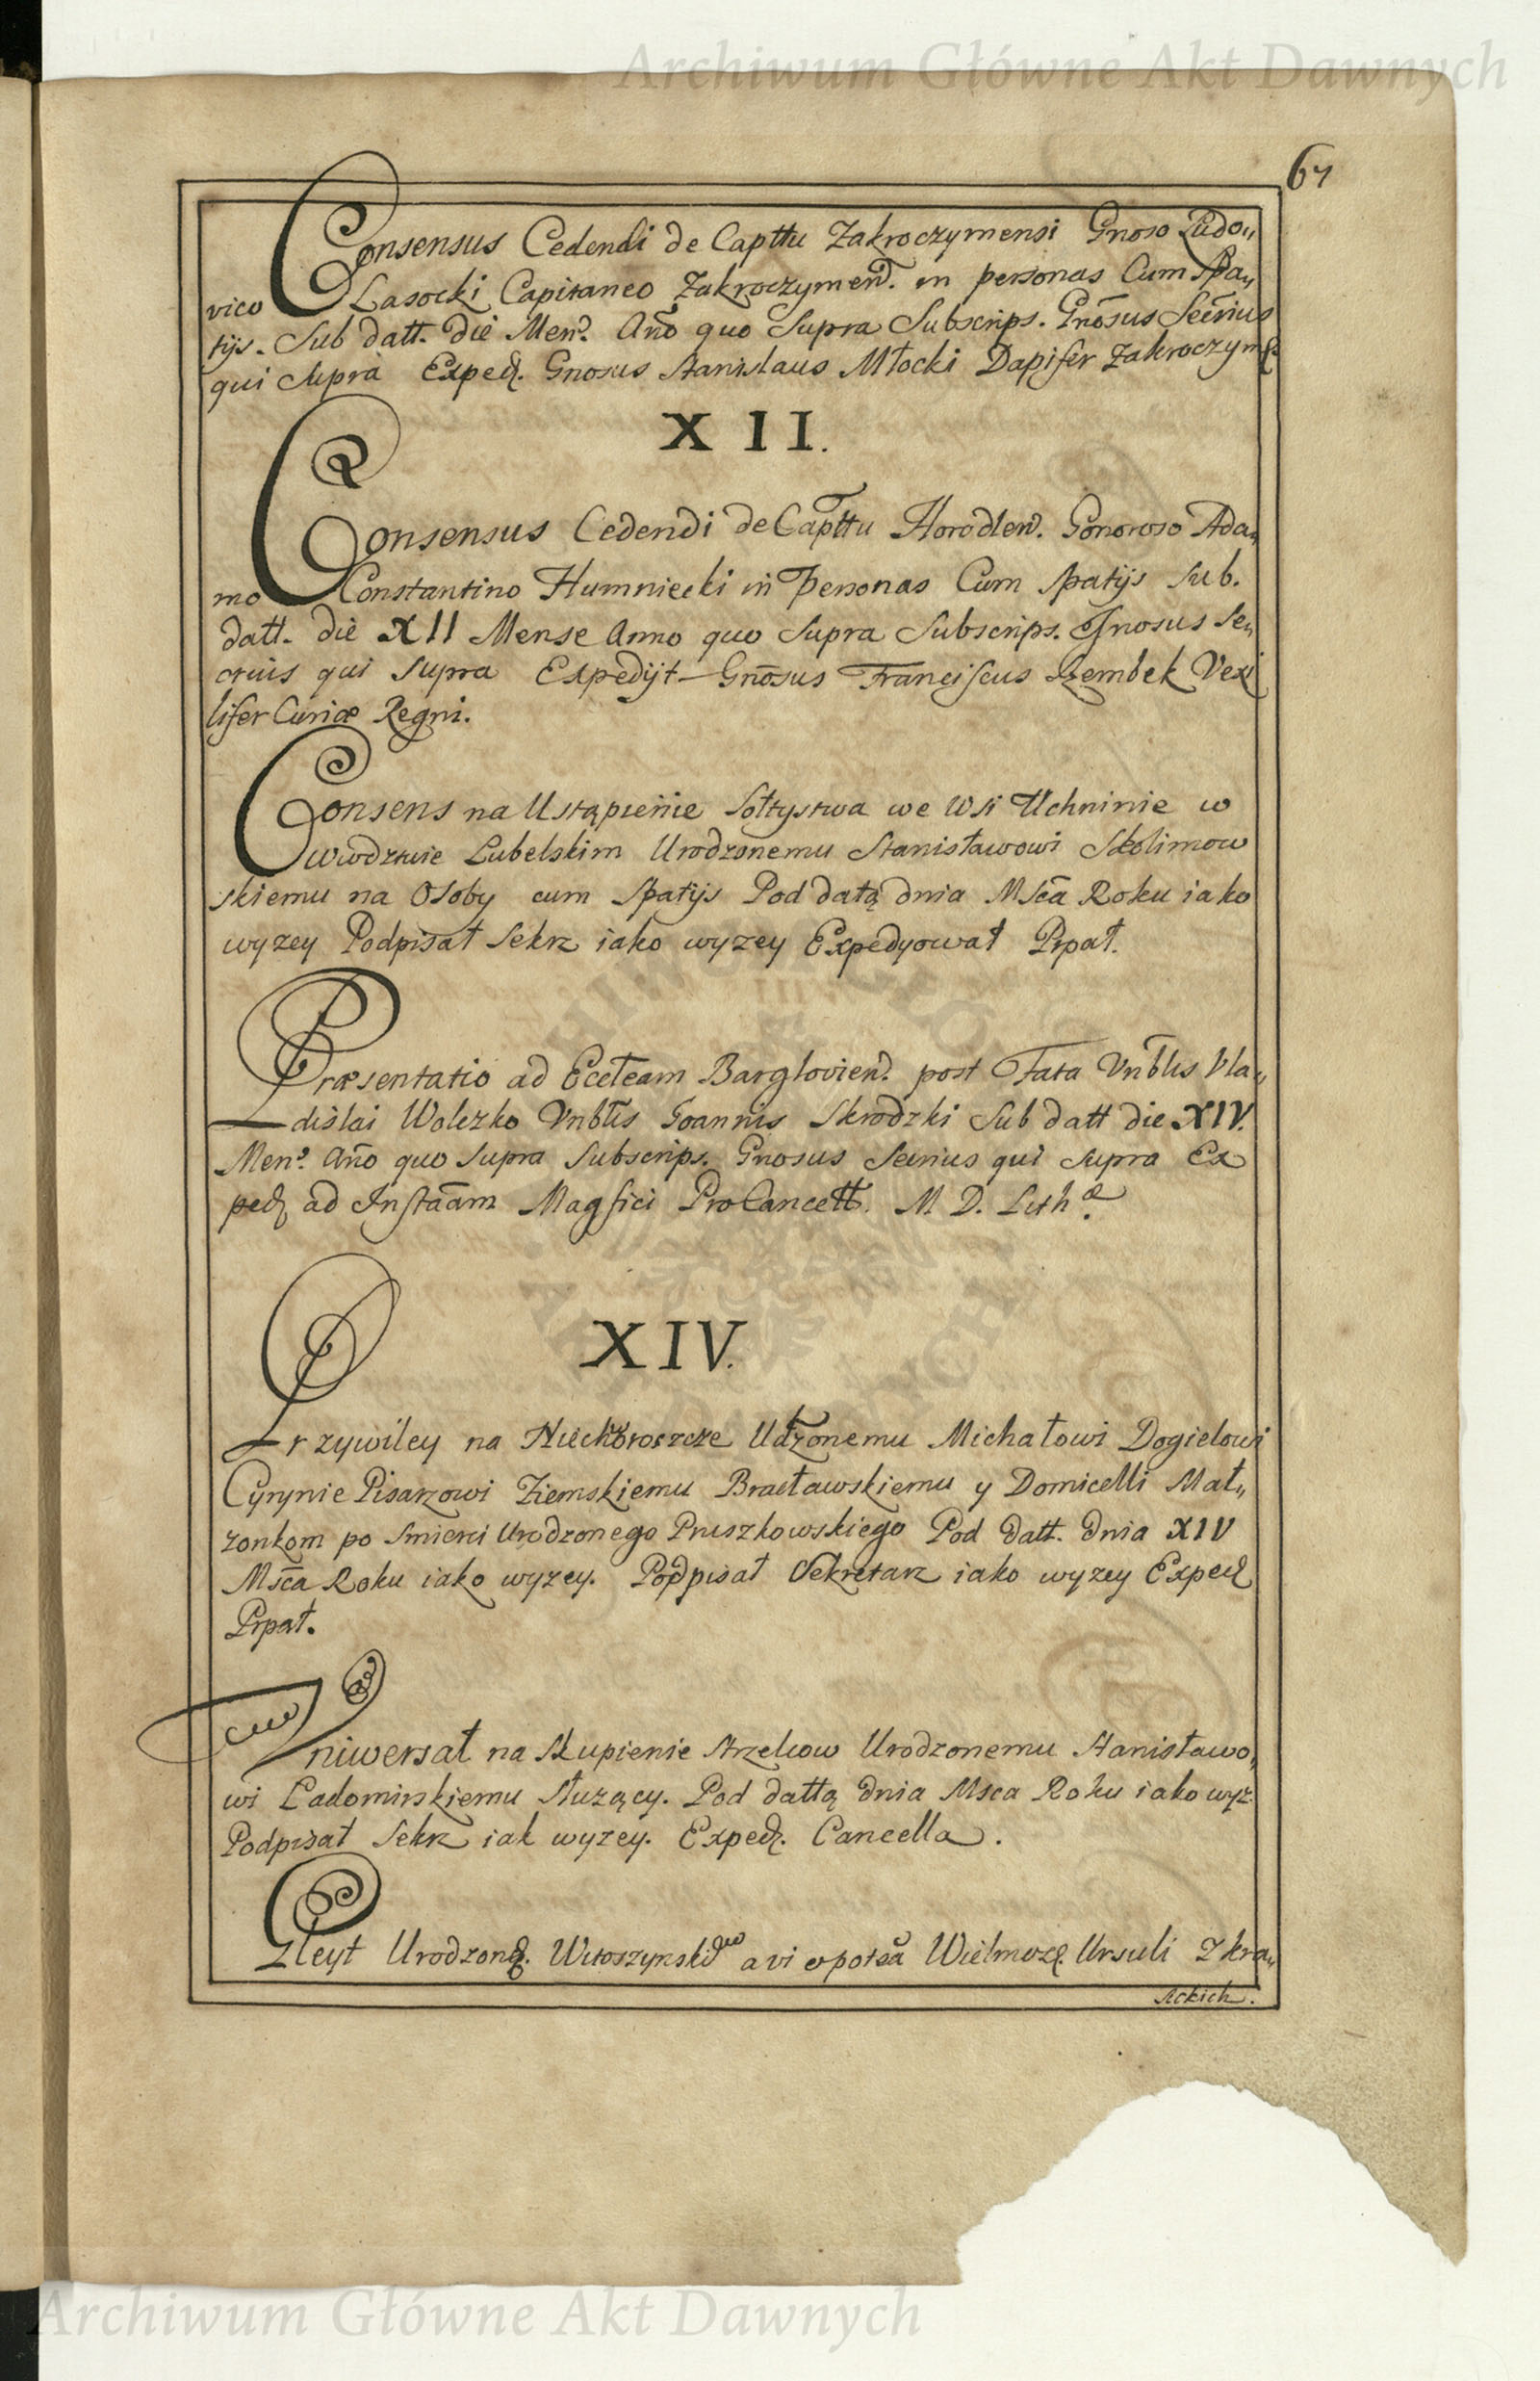 Archiwum Główne Akt Dawnych
67
Consensus Cedendi de Capttu Zakroczymensi Gnoso Ludo„
vico Lasocki Capitaneo Zakroczymen̄. in personas Cum Spa„
tijs. Sub datt. die Men̄. Año quo Supra Subscrips. Gnōsus Secrīus
qui Supra Exped. Gnosus Stanislaus Młocki Dapifer Zakroczym
XII.
Consensus Cedendi de Capttu Horodlen̄. Gōnoroso Ada„
mo Constantino Humniecki in Personas Cum Spatijs Sub.
datt. die XII Mense Anno quo Supra Subscrips. Gnosus Se„
crius qui Supra Expedijt Gnōsus Franciscus Szembek Vexi
lifer Curiæ Regni.
Consens na Ustąpienie Sołtystwa we Wsi Uchninie w
Wwodztwie Lubelskim Urodzonemu Stanisławowi Skolimow
skiemu na Osoby cum Spatijs Pod datą dnia Msc̄a Roku iako
wyzey Podpisał Sekrz iako wyzey Expedyował Prpat.
Præsentatio ad Eccłeam Barglovien̄. post Fata Vnb̄lis Vla„
dislai Wolczko Vnb̄lis Joannis Skrodzki Sub datt die XIV.
Men̄. Año quo Supra Subscrips. Gnosus Secrius qui Supra Ex
ped ad Instāam Magfici ProCancell. M D. Lith.æ
XIV.
Przywiley na Niechoroszcze Udzonemu Michałowi Dogielowi
Cyrynie Pisarzowi Ziemskiemu Bracławskiemu y Domicelli Mał„
zonkom po Smierci Urodzonego Pruszkowskiego Pod datt. dnia XIV
Msc̄a Roku iako wyzey. Podpisał Sekretarz iako wyzey Exped
Prpat.
Uniwersał na Skupienie Strzelcow Urodzonemu Stanisławo„
wi Ladomirskiemu Słuzący. Pod dattą dnia Msca Roku iako wyz.
Podpisał Sekrz iak wyzey. Exped. Cancella.
Gleyt Urodzon. a vi Wielmoz. Ursuli Zkra„
sickich.
Archiwum Główne Akt Dawnych